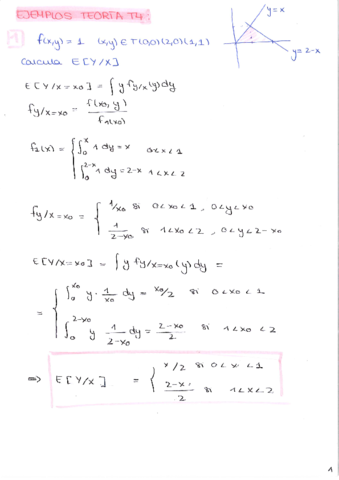 EJEMPLOS TEORÍA T4
1 f(x,y) = 1 (x,y) ∈ T(0,0)(2,0)(1,1)
y=x
y=2-x
Calcula E[Y/X]
E[Y/X=x0] = ∫ y fy/x(y) dy
fy/x=x0 = f(x0, y) / f1(x0)
f1(x) = { ∫₀ˣ 1 dy = x 0<x<1
∫₀²⁻ˣ 1 dy = 2-x 1<x<2
fy/x=x0 = { 1/x0 si 0<x0<1, 0<y<x0
1/(2-x0) si 1<x0<2, 0<y<2-x0
E[Y/X=x0] = ∫ y fy/x=x0(y) dy =
= { ∫₀ˣ⁰ y · 1/x0 dy = x0/2 si 0<x0<1
∫₀²⁻ˣ⁰ y 1/(2-x0) dy = (2-x0)/2 si 1<x0<2
⇒ E[Y/X] = { x/2 si 0<x<1
(2-x)/2 si 1<x<2
1